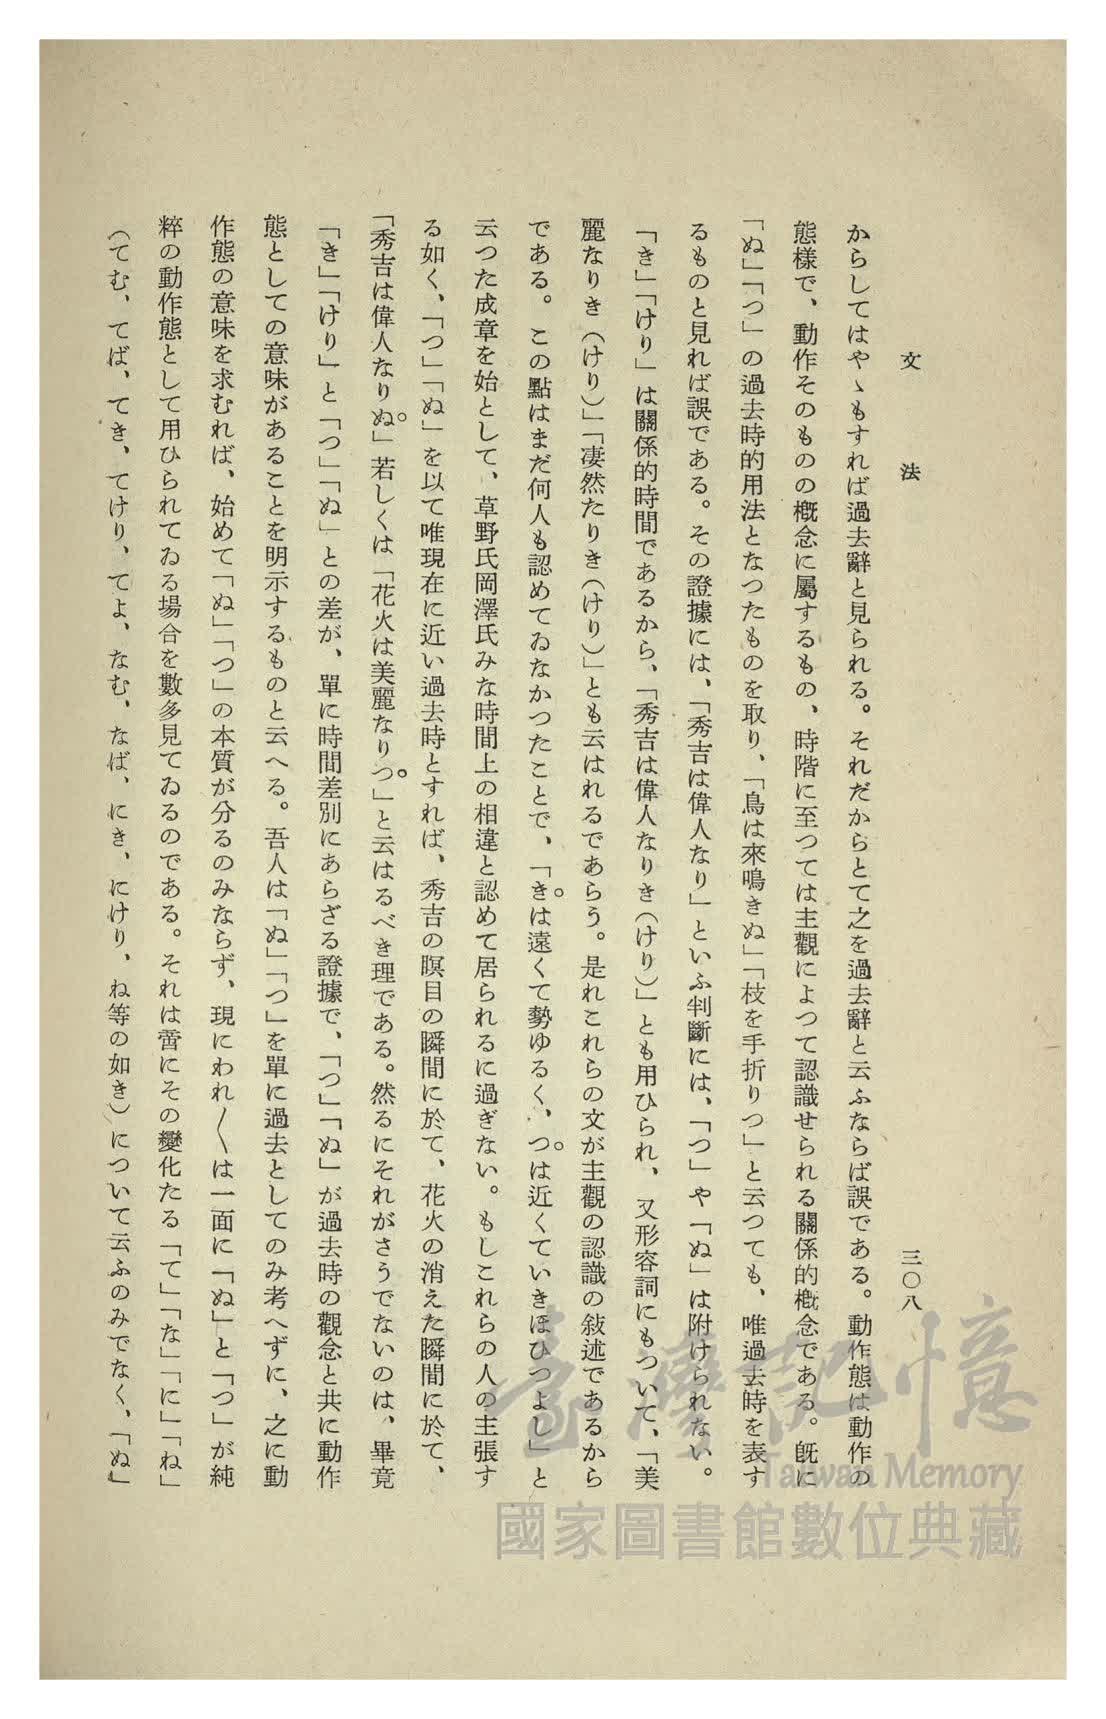 文法
三〇八
からしてはやゝもすれば過去辭と見られる。それだからとて之を過去辭と云ふならば誤である。動作態は動作の
態樣で、動作そのものの概念に屬するもの、時階に至つては主觀によつて認識せられる關係的概念である。旣に
「ぬ」「つ」の過去時的用法となつたものを取り、「鳥は來鳴きぬ」「枝を手折りつ」と云つても、唯過去時を表す
るものと見れば誤である。その證據には、「秀吉は偉人なり」といふ判斷には、「つ」や「ぬ」は附けられない。
「き」「けり」は關係的時間であるから、「秀吉は偉人なりき（けり）」とも用ひられ、又形容詞にもついて、「美
麗なりき（けり）」「凄然たりき（けり）」とも云はれるであらう。是れこれらの文が主觀の認識の敍述であるから
である。この點はまだ何人も認めてゐなかつたことで、「き。は遠くて勢ゆるく、つ。は近くていきほひつよし」と
云つた成章を始として、草野氏岡澤氏みな時間上の相違と認めて居られるに過ぎない。もしこれらの人の主張す
る如く、「つ」「ぬ」を以て唯現在に近い過去時とすれば、秀吉の瞑目の瞬間に於て、花火の消えた瞬間に於て、
「秀吉は偉人なりぬ。」若しくは「花火は美麗なりつ。」と云はるべき理である。然るにそれがさうでないのは、畢竟
「き」「けり」と「つ」「ぬ」との差が、單に時間差別にあらざる證據で、「つ」「ぬ」が過去時の觀念と共に動作
態としての意味があることを明示するものと云へる。吾人は「ぬ」「つ」を單に過去としてのみ考へずに、之に動
作態の意味を求むれば、始めて「ぬ」「つ」の本質が分るのみならず、現にわれ〱は一面に「ぬ」と「つ」が純
粹の動作態として用ひられてゐる場合を數多見てゐるのである。それは啻にその變化たる「て」「な」「に」「ね」
（てむ、てば、てき、てけり、てよ、なむ、なば、にき、にけり、ね等の如き）について云ふのみでなく、「ぬ」
臺灣記憶
Taiwan Memory
國家圖書館數位典藏